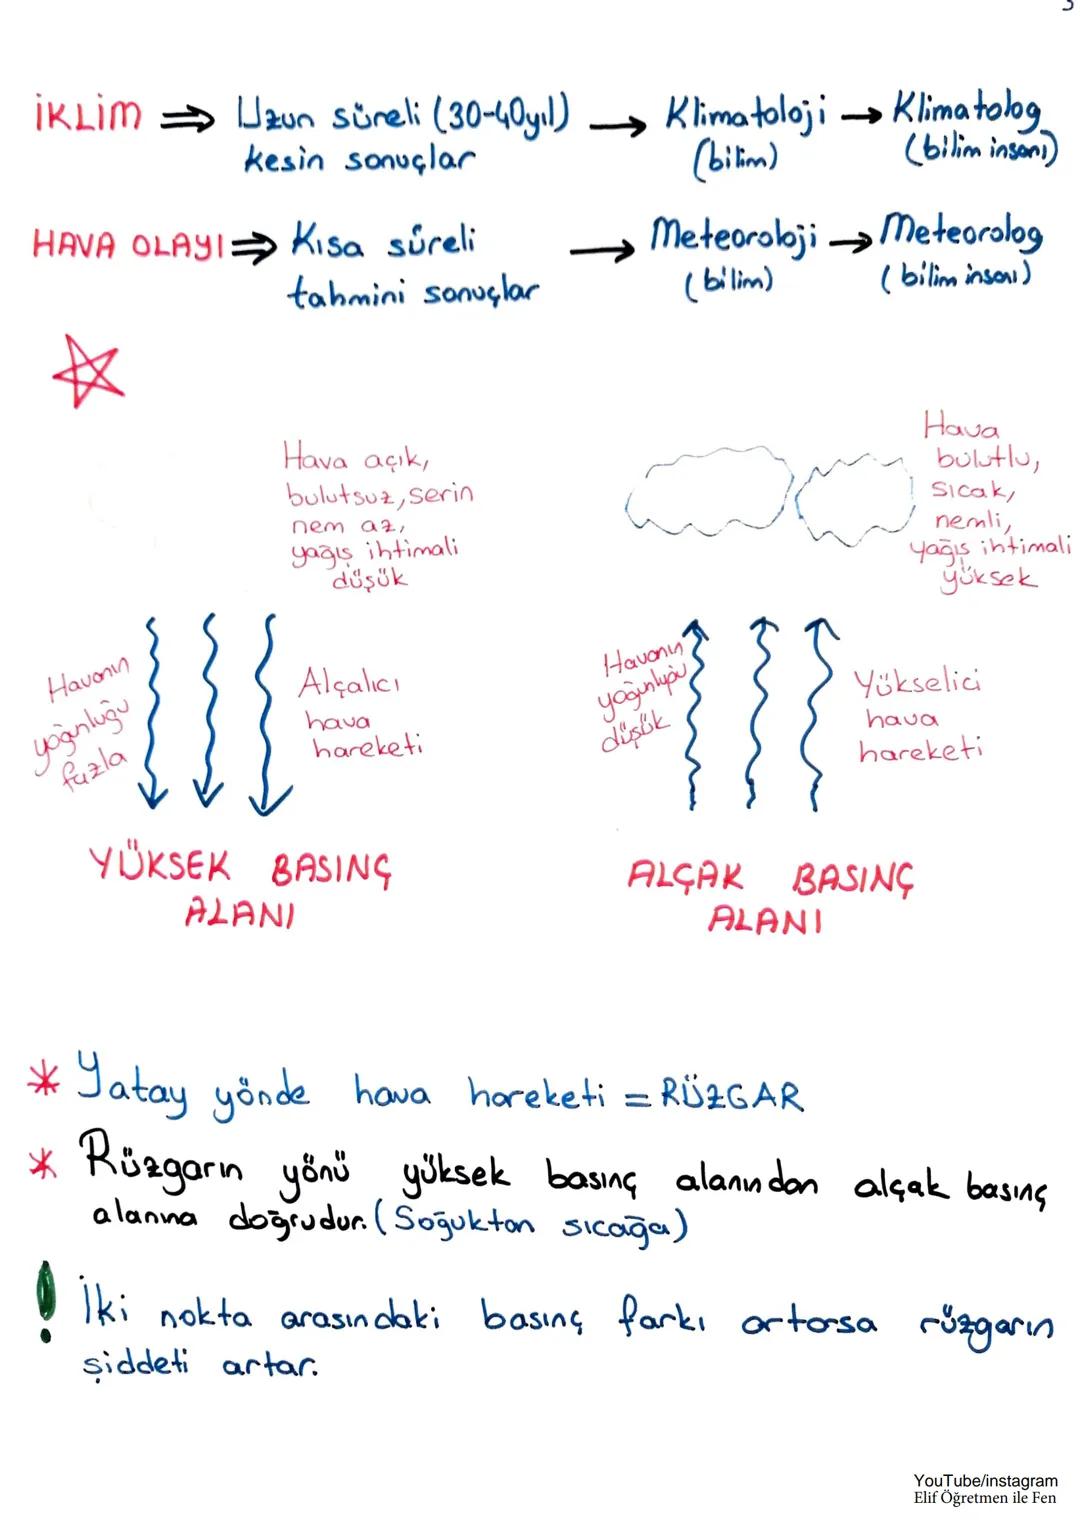 İKLİM ⇒ Uzun süreli (30-40yıl) → Klimatoloji → Klimatolog
kesin sonuçlar (bilim) (bilim insanı)
HAVA OLAYI ⇒ Kısa süreli → Meteoroloji → Meteorolog
tahmini sonuçlar (bilim) (bilim insanı)
Hava açık,
bulutsuz, serin
nem az,
yağış ihtimali
düşük
Hava
bulutlu,
sıcak,
nemli,
yağış ihtimali
yüksek
Havanın
yoğunluğu
fazla
Alçalıcı
hava
hareketi
Havanın
yoğunluğu
düşük
Yükselici
hava
hareketi
YÜKSEK BASINÇ
ALANI
ALÇAK BASINÇ
ALANI
* Yatay yönde hava hareketi = RÜZGAR
* Rüzgarın yönü yüksek basınç alanından alçak basınç
alanına doğrudur. (Soğuktan sıcağa)
! İki nokta arasındaki basınç farkı artarsa rüzgarın
şiddeti artar.
YouTube/instagram
Elif Öğretmen ile Fen